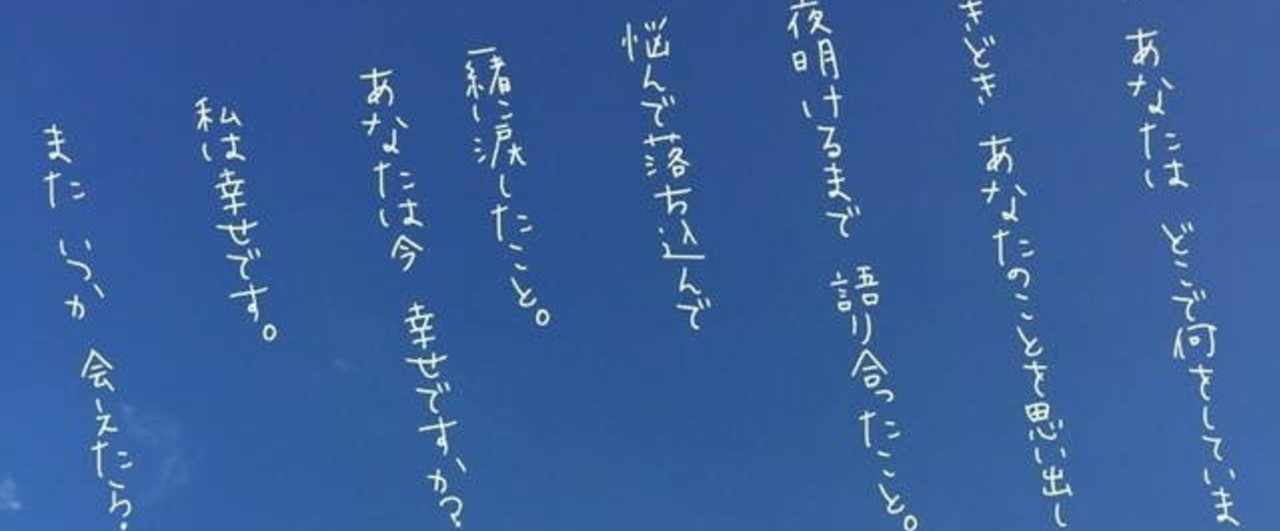 あなたは どこで何をしていま
きどき あなたのことを思い出し
夜明けるまで 語り合ったこと。
悩んで落ち込んで
一緒に涙したこと。
あなたは今 幸せですか?
私は幸せです。
また いつか 会えたら